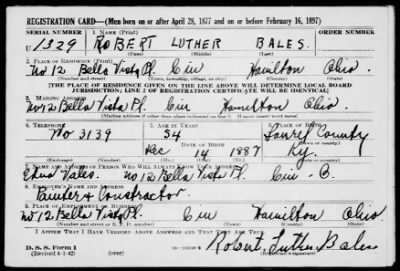 REGISTRATION CARD—(Men born on or after April 28, 1877 and on or before February 16, 1897)
SERIAL NUMBER 1. NAME (Print) ORDER NUMBER
U 1329 ROBERT LUTHER BALES.
(First) (Middle) (Last)
2. PLACE OF RESIDENCE (Print)
No 12 Bella Vista Pl. Cin Hamilton Ohio.
(Number and street) (Town, township, village, or city) (County) (State)
[THE PLACE OF RESIDENCE GIVEN ON THE LINE ABOVE WILL DETERMINE LOCAL BOARD
JURISDICTION; LINE 2 OF REGISTRATION CERTIFICATE WILL BE IDENTICAL]
3. MAILING ADDRESS
No 12 Bella Vista Pl. Cin Hamilton Ohio.
[Mailing address if other than place indicated on line 2. If same insert word same]
4. TELEPHONE 5. AGE IN YEARS 6. PLACE OF BIRTH
No 3139 54 County
DATE OF BIRTH
Dec 14 1887 Ky.
(Exchange) (Number) (Mo.) (Day) (Yr.) (State or country)
7. NAME AND ADDRESS OF PERSON WHO WILL ALWAYS KNOW YOUR ADDRESS
No 12 Bella Vista Pl. Cin - O.
8. EMPLOYER'S NAME AND ADDRESS
Painter & Constractor.
9. PLACE OF EMPLOYMENT OR BUSINESS
No 12 Bella Vista Pl. Cin Hamilton Ohio
(Number and street or R. F. D. number) (Town) (County) (State)
I AFFIRM THAT I HAVE VERIFIED ABOVE ANSWERS AND THAT THEY ARE TRUE.
D. S. S. Form 1 Robert Luther Bales
(Revised 4-1-42) (over) (Registrant's signature)